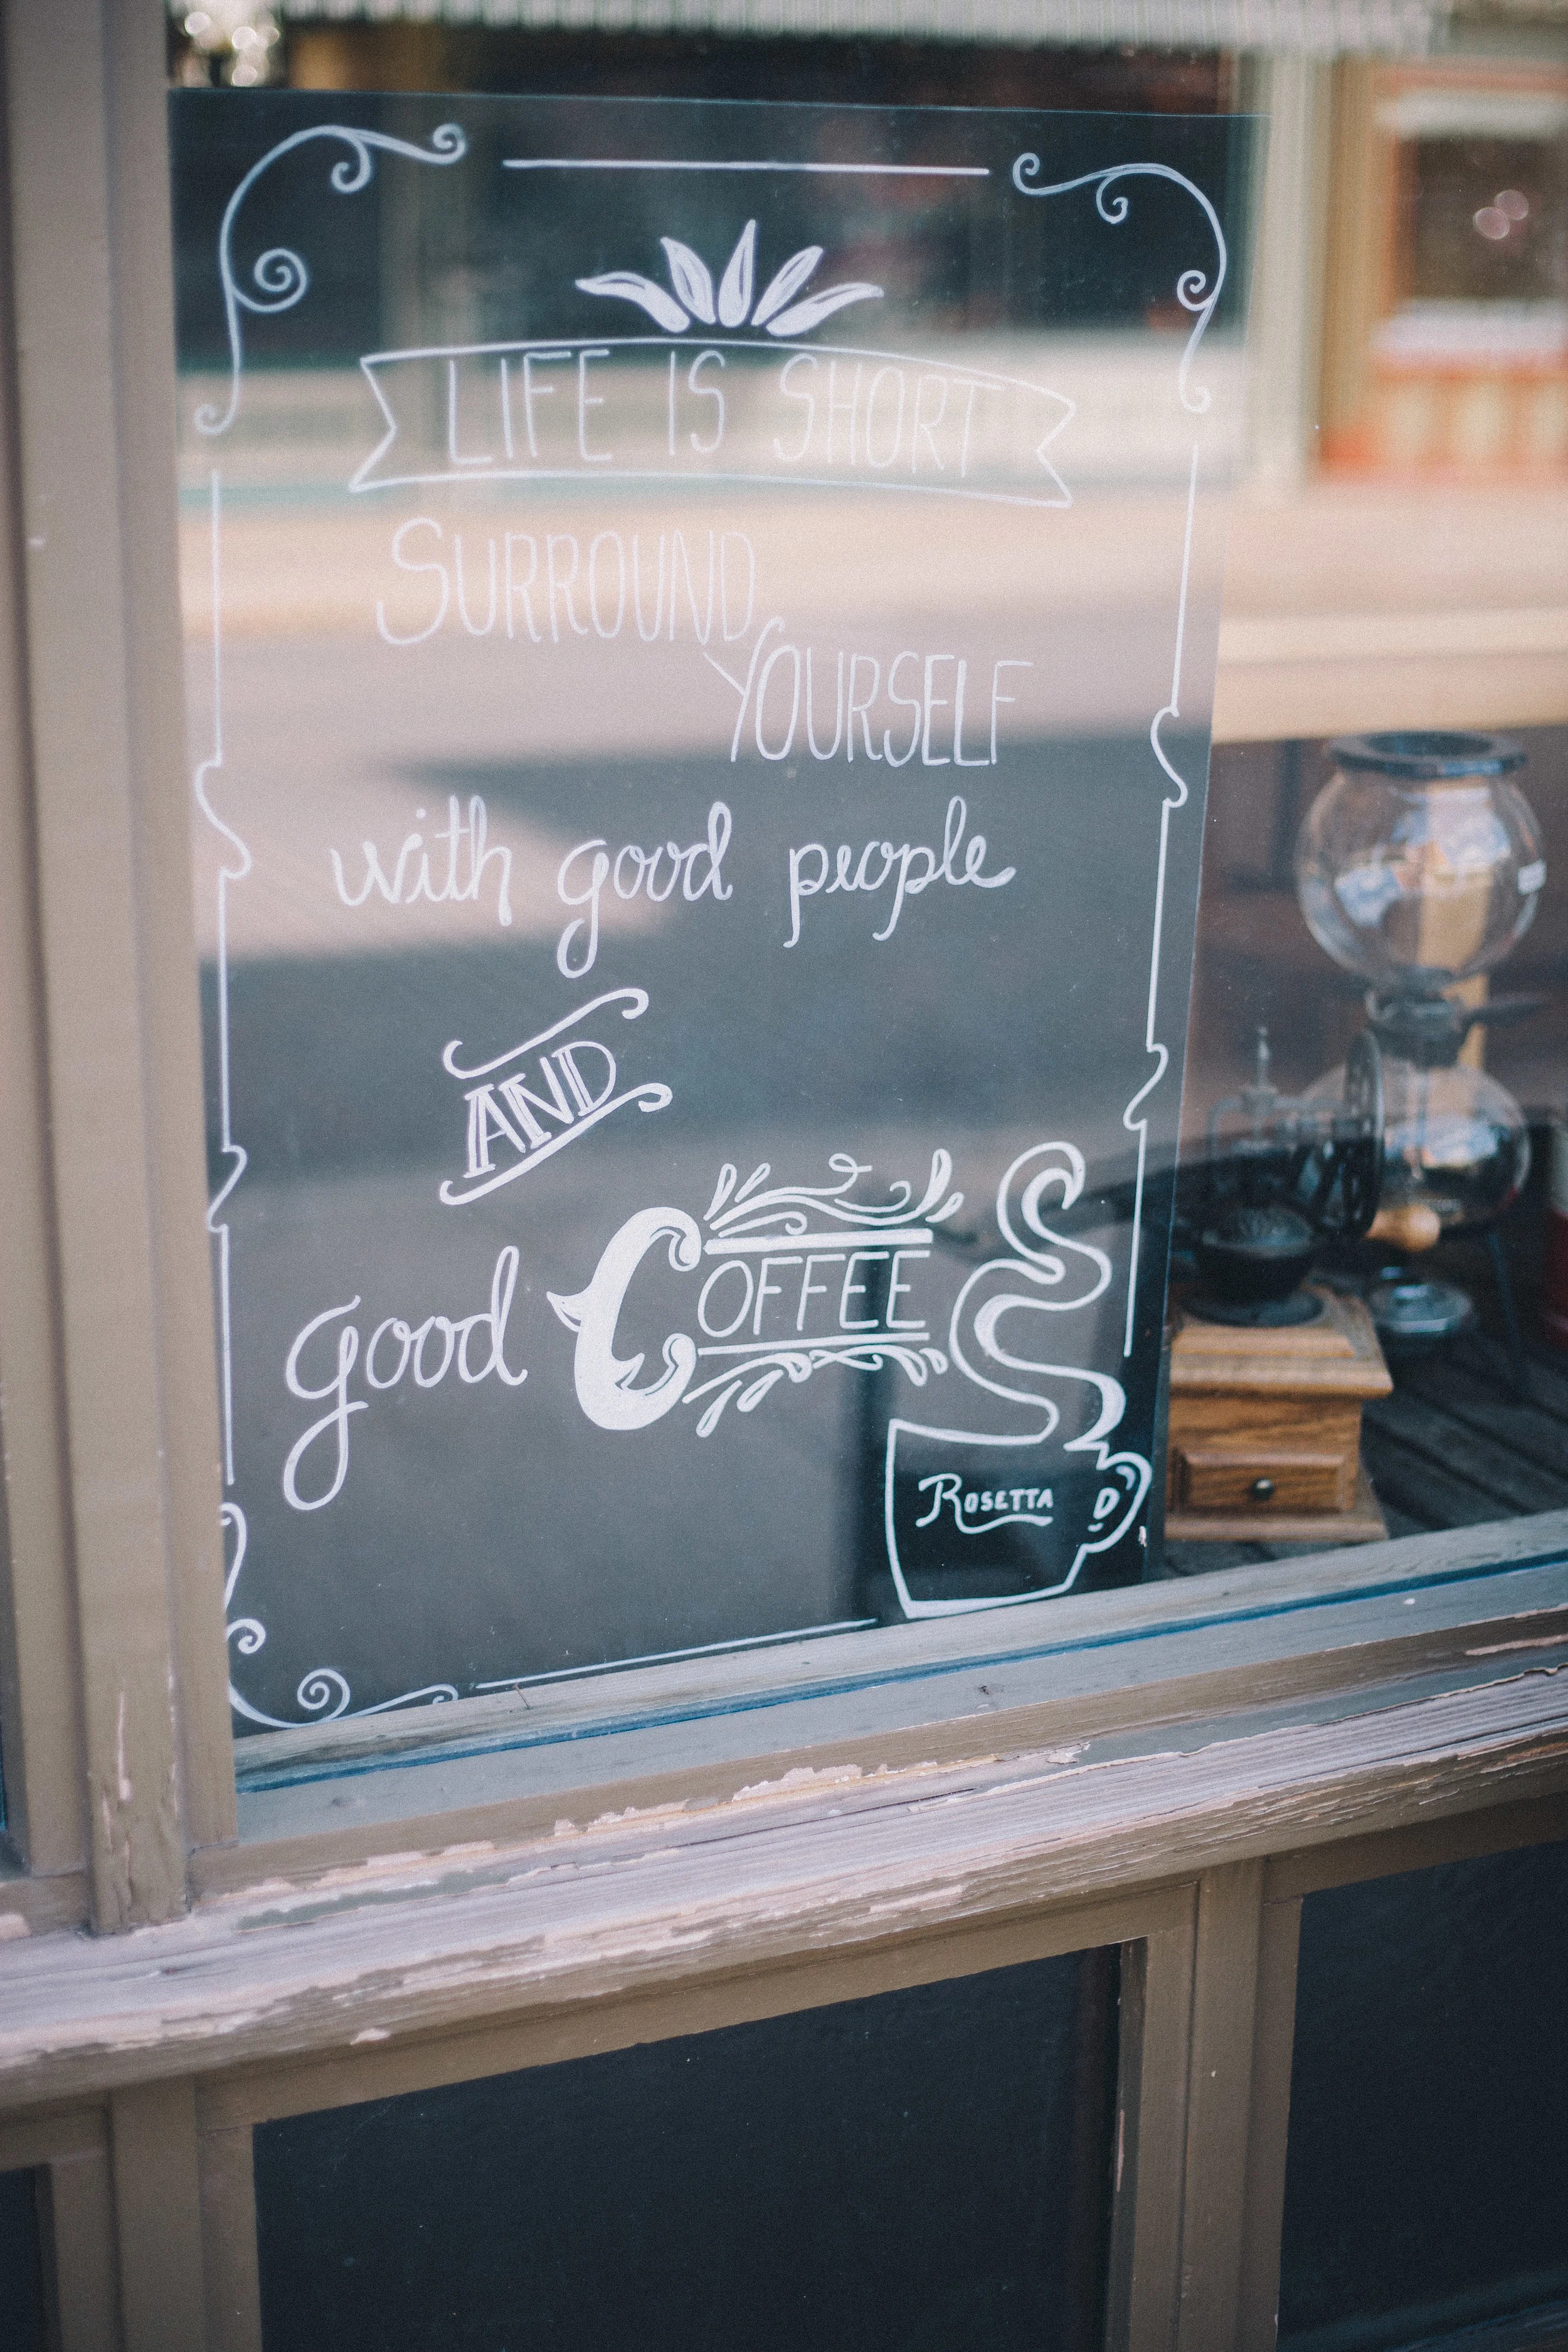 LIFE IS SHORT
SURROUND
YOURSELF
with good people
AND
good COFFEE
ROSETTA